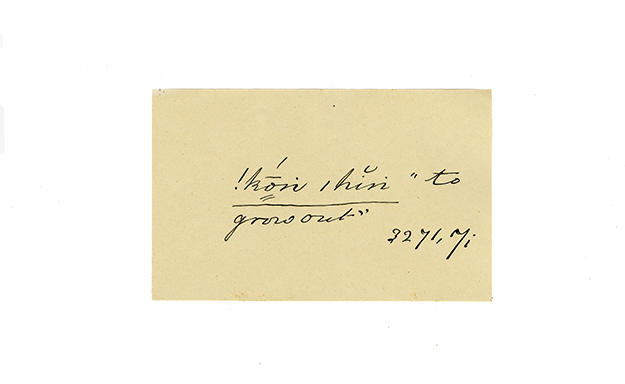 !kṓ̳in |hĭn " to
grow out"
3271, 7i